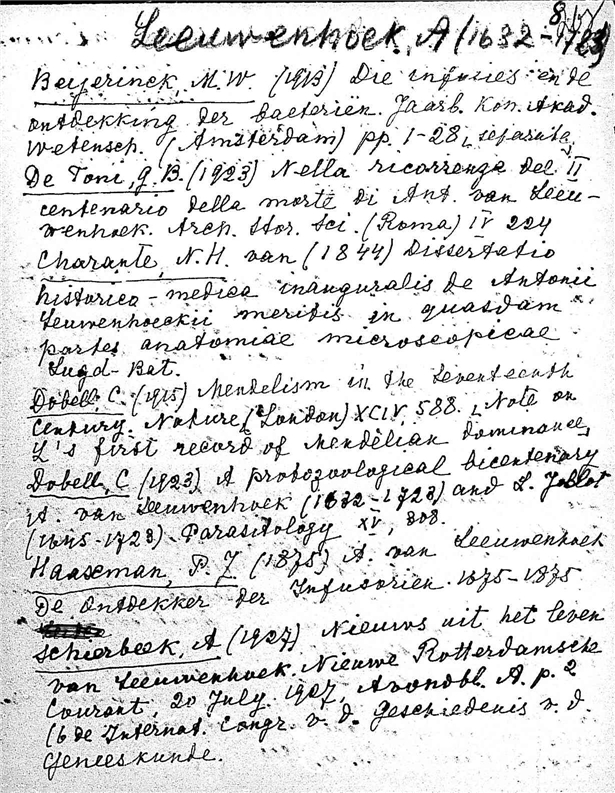 Leeuwenhoek, A (1632-1723)
Beyerinck, M.W. (1913) Die infusies en de
ontdekking der bacteriën. Jaarb. Kon. Akad.
Wetensch. (Amsterdam) pp. 1-28, separate,
De Toni, G.B. (1923) Nella ricorrenza del II
centenario della morte di Ant. van Leeu-
wenhoek. Arch. Stor. Sci. (Roma) IV 224
Charante, N.H. van (1844) Dissertatio
historico-medica inauguralis de Antonii
Leuwenhoeckii meritis in quasdam
partes anatomiae microscopicae
Lugd-Bat.
Dobell C. (1915) Mendelism in the Seventeenth
Century. Nature (London) XCIV, 588. [Note on
L's first record of Mendelian dominance]
Dobell, C (1923) A protozoological bicentenary
A. van Leeuwenhoek (1632-1723) and L. Joblot
(1645-1723) Parasitology XV, 308.
Haaxman, P. J (1875) A. van Leeuwenhoek
De Ontdekker der Infusorien. 1675-1875
Schierbeek, A (1927) Nieuws uit het leven
van Leeuwenhoek. Nieuwe Rotterdamsche
Courant, 20 July. 1927, Avondbl. A. p. 2
(6 de Internat. Congr. v. d. Geschiedenis v. d.
Geneeskunde.